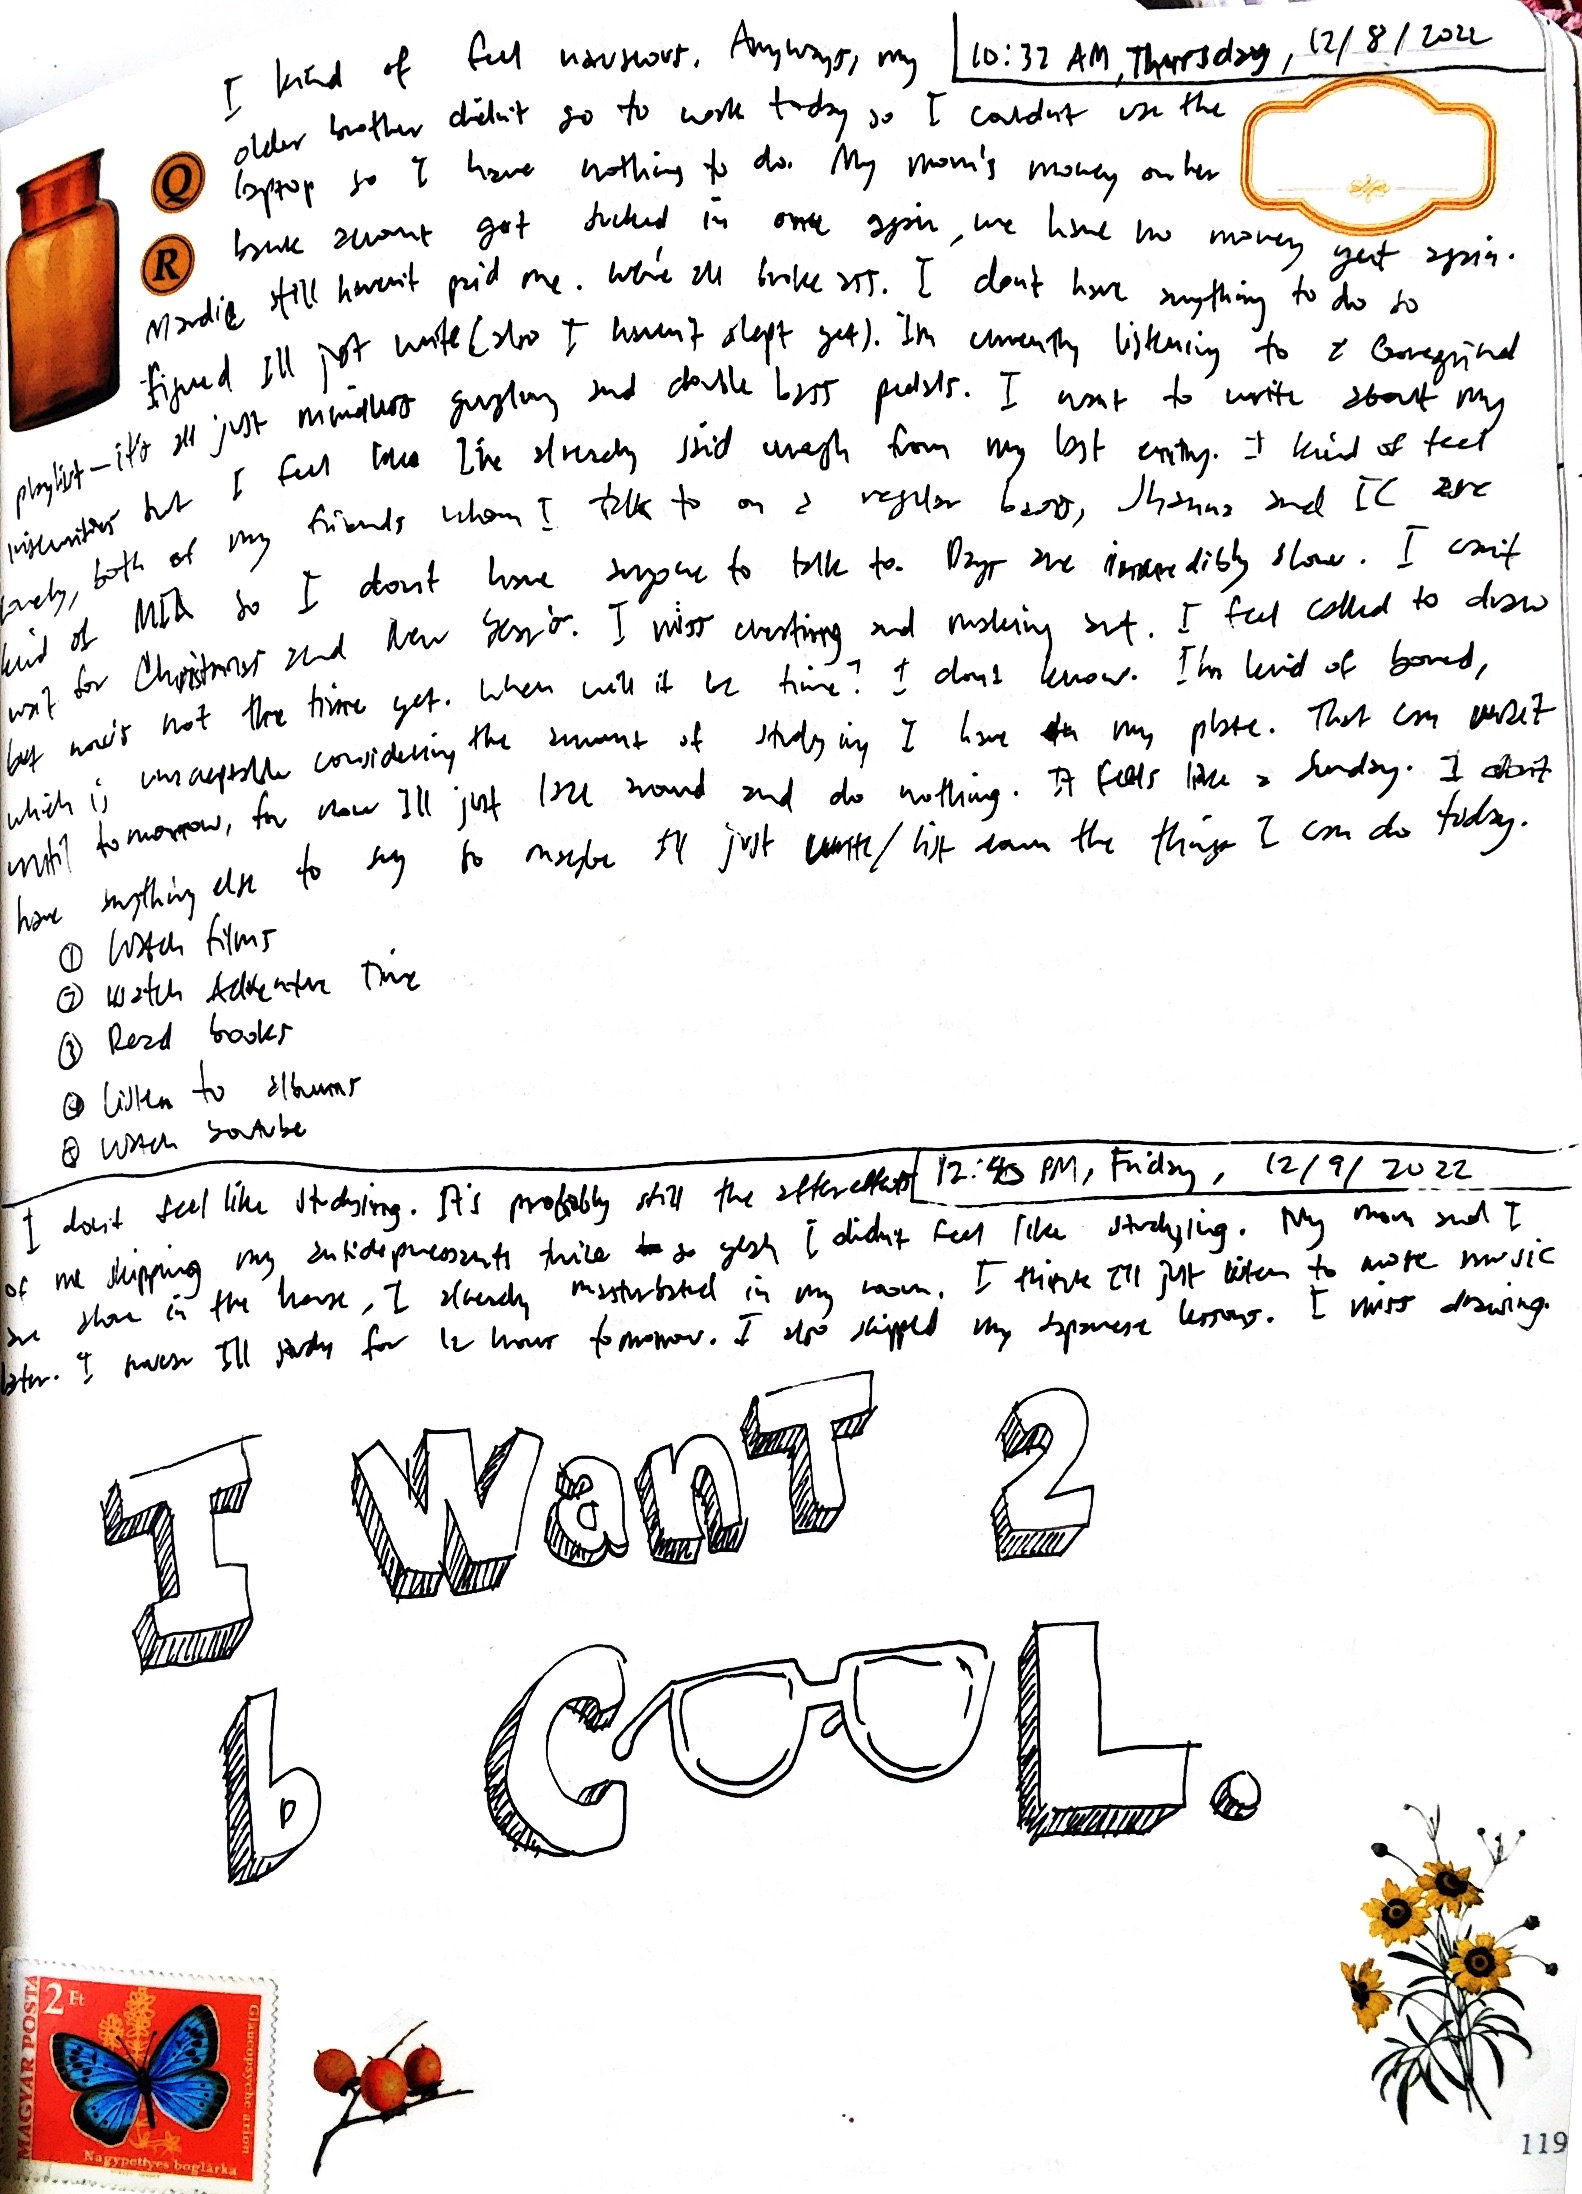 10:32 AM, Thursday, 12/8/2022
I kind of feel nauseous. Anyways, my
older brother didn't go to work today so I couldn't use the
laptop so I have nothing to do. My mom's money on her
bank account got sucked in once again, we have no money yet again.
still haven't paid me. We're all broke ass. I don't have anything to do so
figured I'll just write (also I haven't slept yet). I'm currently listening to a Goregrind
playlist—it's all just mindless gurgling and double bass pedals. I want to write about my
insecurities but I feel like I've already said enough from my last entry. I kind of feel
lonely, both of my friends whom I talk to on a regular basis, and are
kind of MIA so I don't have anyone to talk to. Days are incredibly slow. I can't
wait for Christmas and New Year's. I miss creating and making art. I feel called to draw
but now's not the time yet. When will it be time? I don't know. I'm kind of bored,
which is unacceptable considering the amount of studying I have on my plate. That can wait
until tomorrow, for now I'll just laze around and do nothing. It feels like a Sunday. I don't
have anything else to say so maybe I'll just write/list down the things I can do today.
① Watch films
② Watch Adventure Time
③ Read books
④ Listen to albums
⑤ Watch Youtube
12:45 PM, Friday, 12/9/2022
I don't feel like studying. It's probably still the aftereffects
of me skipping my antidepressants twice so yeah I didn't feel like studying. My mom and I
are alone in the house, I already masturbated in my room. I think I'll just listen to more music
later. I swear I'll study for 12 hours tomorrow. I also skipped my Japanese lessons. I miss drawing.
I WanT 2
b COOL.
Q
R
MAGYAR POSTA
2 Ft
Glaucopsyche arion
Nagypettyes boglárka
119